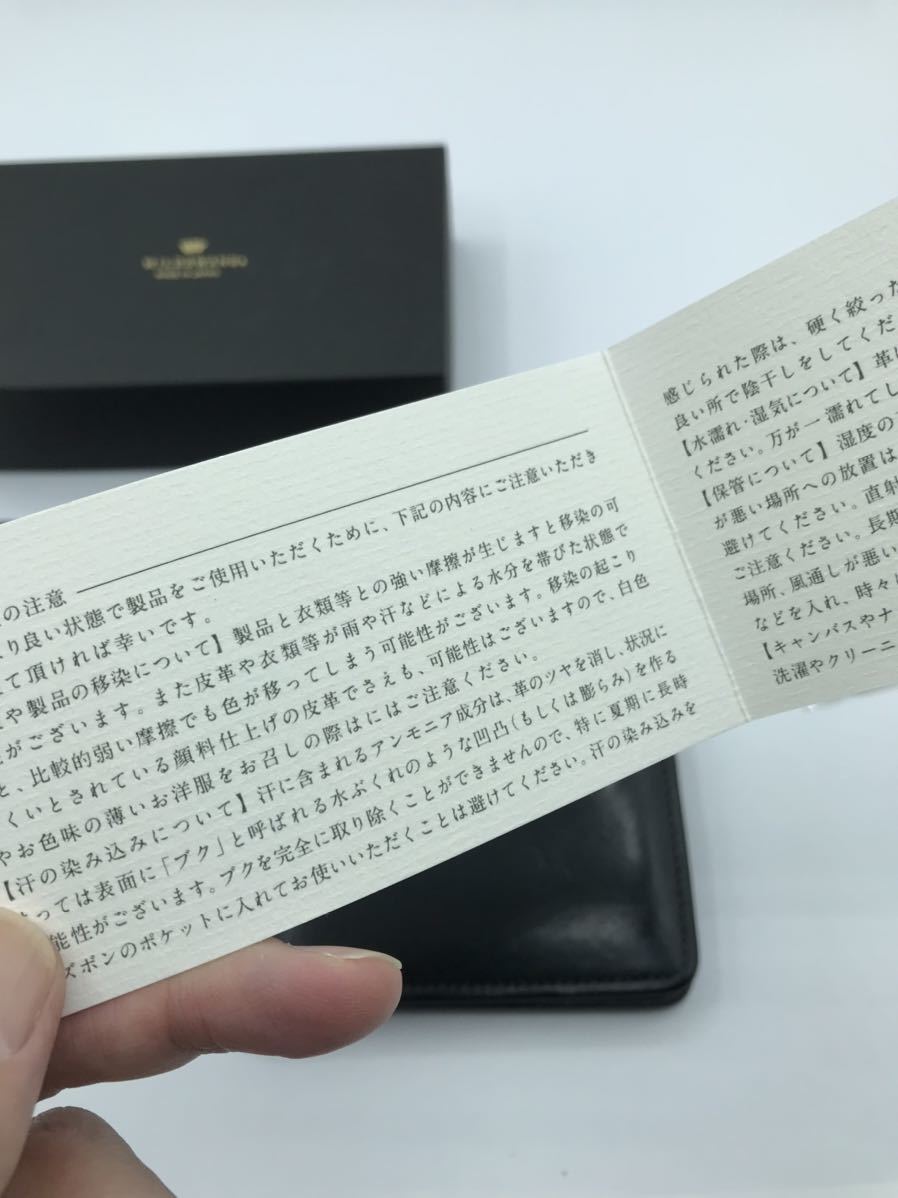 の注意
り良い状態で製品をご使用いただくために、下記の内容にご注意いただき
て頂ければ幸いです。
や製品の移染について】製品と衣類等との強い摩擦が生じますと移染の可
がございます。また皮革や衣類等が雨や汗などによる水分を帯びた状態で
と、比較的弱い摩擦でも色が移ってしまう可能性がございます。移染の起こり
くいとされている顔料仕上げの皮革でさえも、可能性はございますので、白色
やお色味の薄いお洋服をお召しの際はにはご注意ください。
【汗の染み込みについて】汗に含まれるアンモニア成分は、革のツヤを消し、状況に
っては表面に「ブク」と呼ばれる水ぶくれのような凹凸(もしくは膨らみ)を作る
能性がございます。ブクを完全に取り除くことができませんので、特に夏期に長時
ズボンのポケットに入れてお使いいただくことは避けてください。汗の染み込みを
感じられた際は、硬く絞った
良い所で陰干しをしてくだ
【水濡れ・湿気について】革に
ください。万が一濡れてし
【保管について】湿度の
が悪い場所への放置は
避けてください。直射
ご注意ください。長期
場所、風通しが悪い
などを入れ、時々に
【キャンバスやナ
洗濯やクリーニ